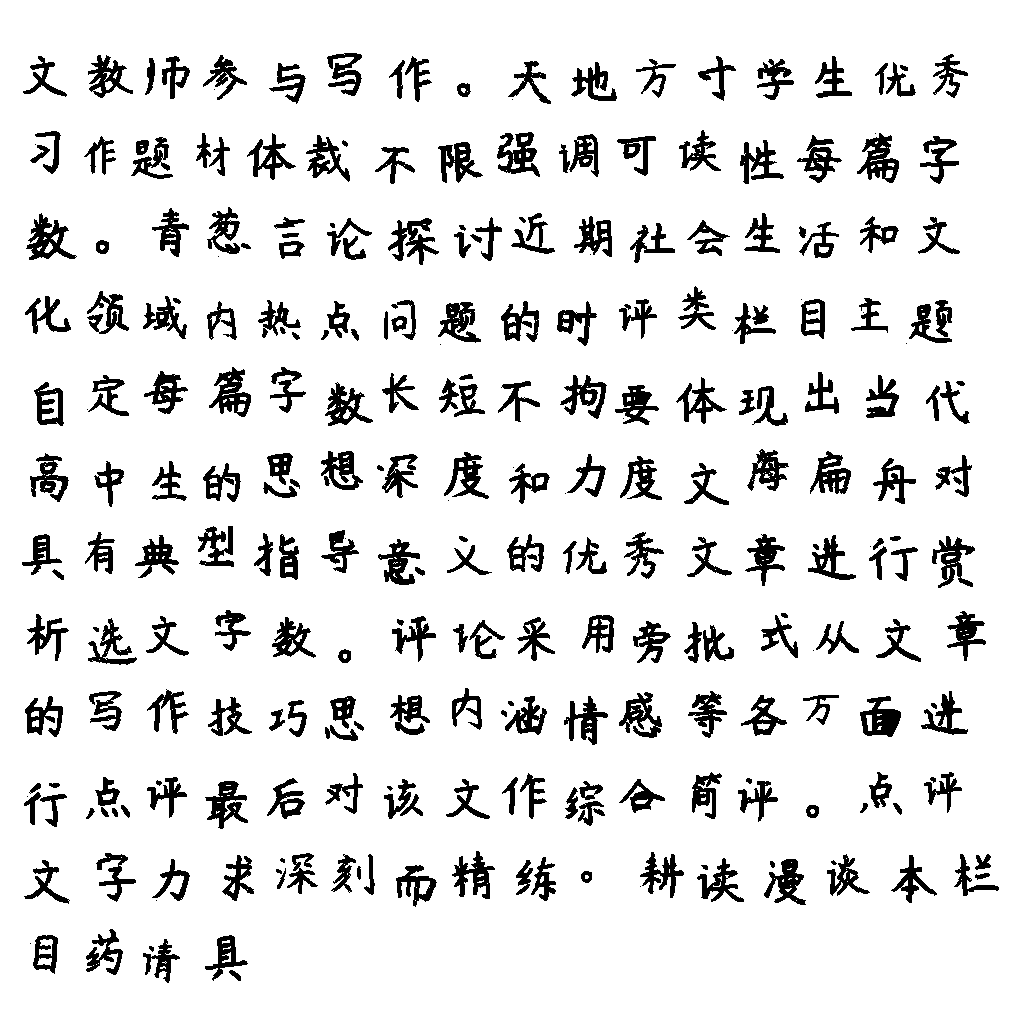 文教师参与写作。天地方寸学生优秀
习作题材体裁不限强调可读性每篇字
数。青葱言论探讨近期社会生活和文
化领域内热点问题的时评类栏目主题
自定每篇字数长短不拘要体现出当代
高中生的思想深度和力度文海扁舟对
具有典型指导意义的优秀文章进行赏
析选文字数。评论采用旁批式从文章
的写作技巧思想内涵情感等各万面进
行点评最后对该文作综合简评。点评
文字力求深刻而精练。耕读漫谈本栏
目药请具